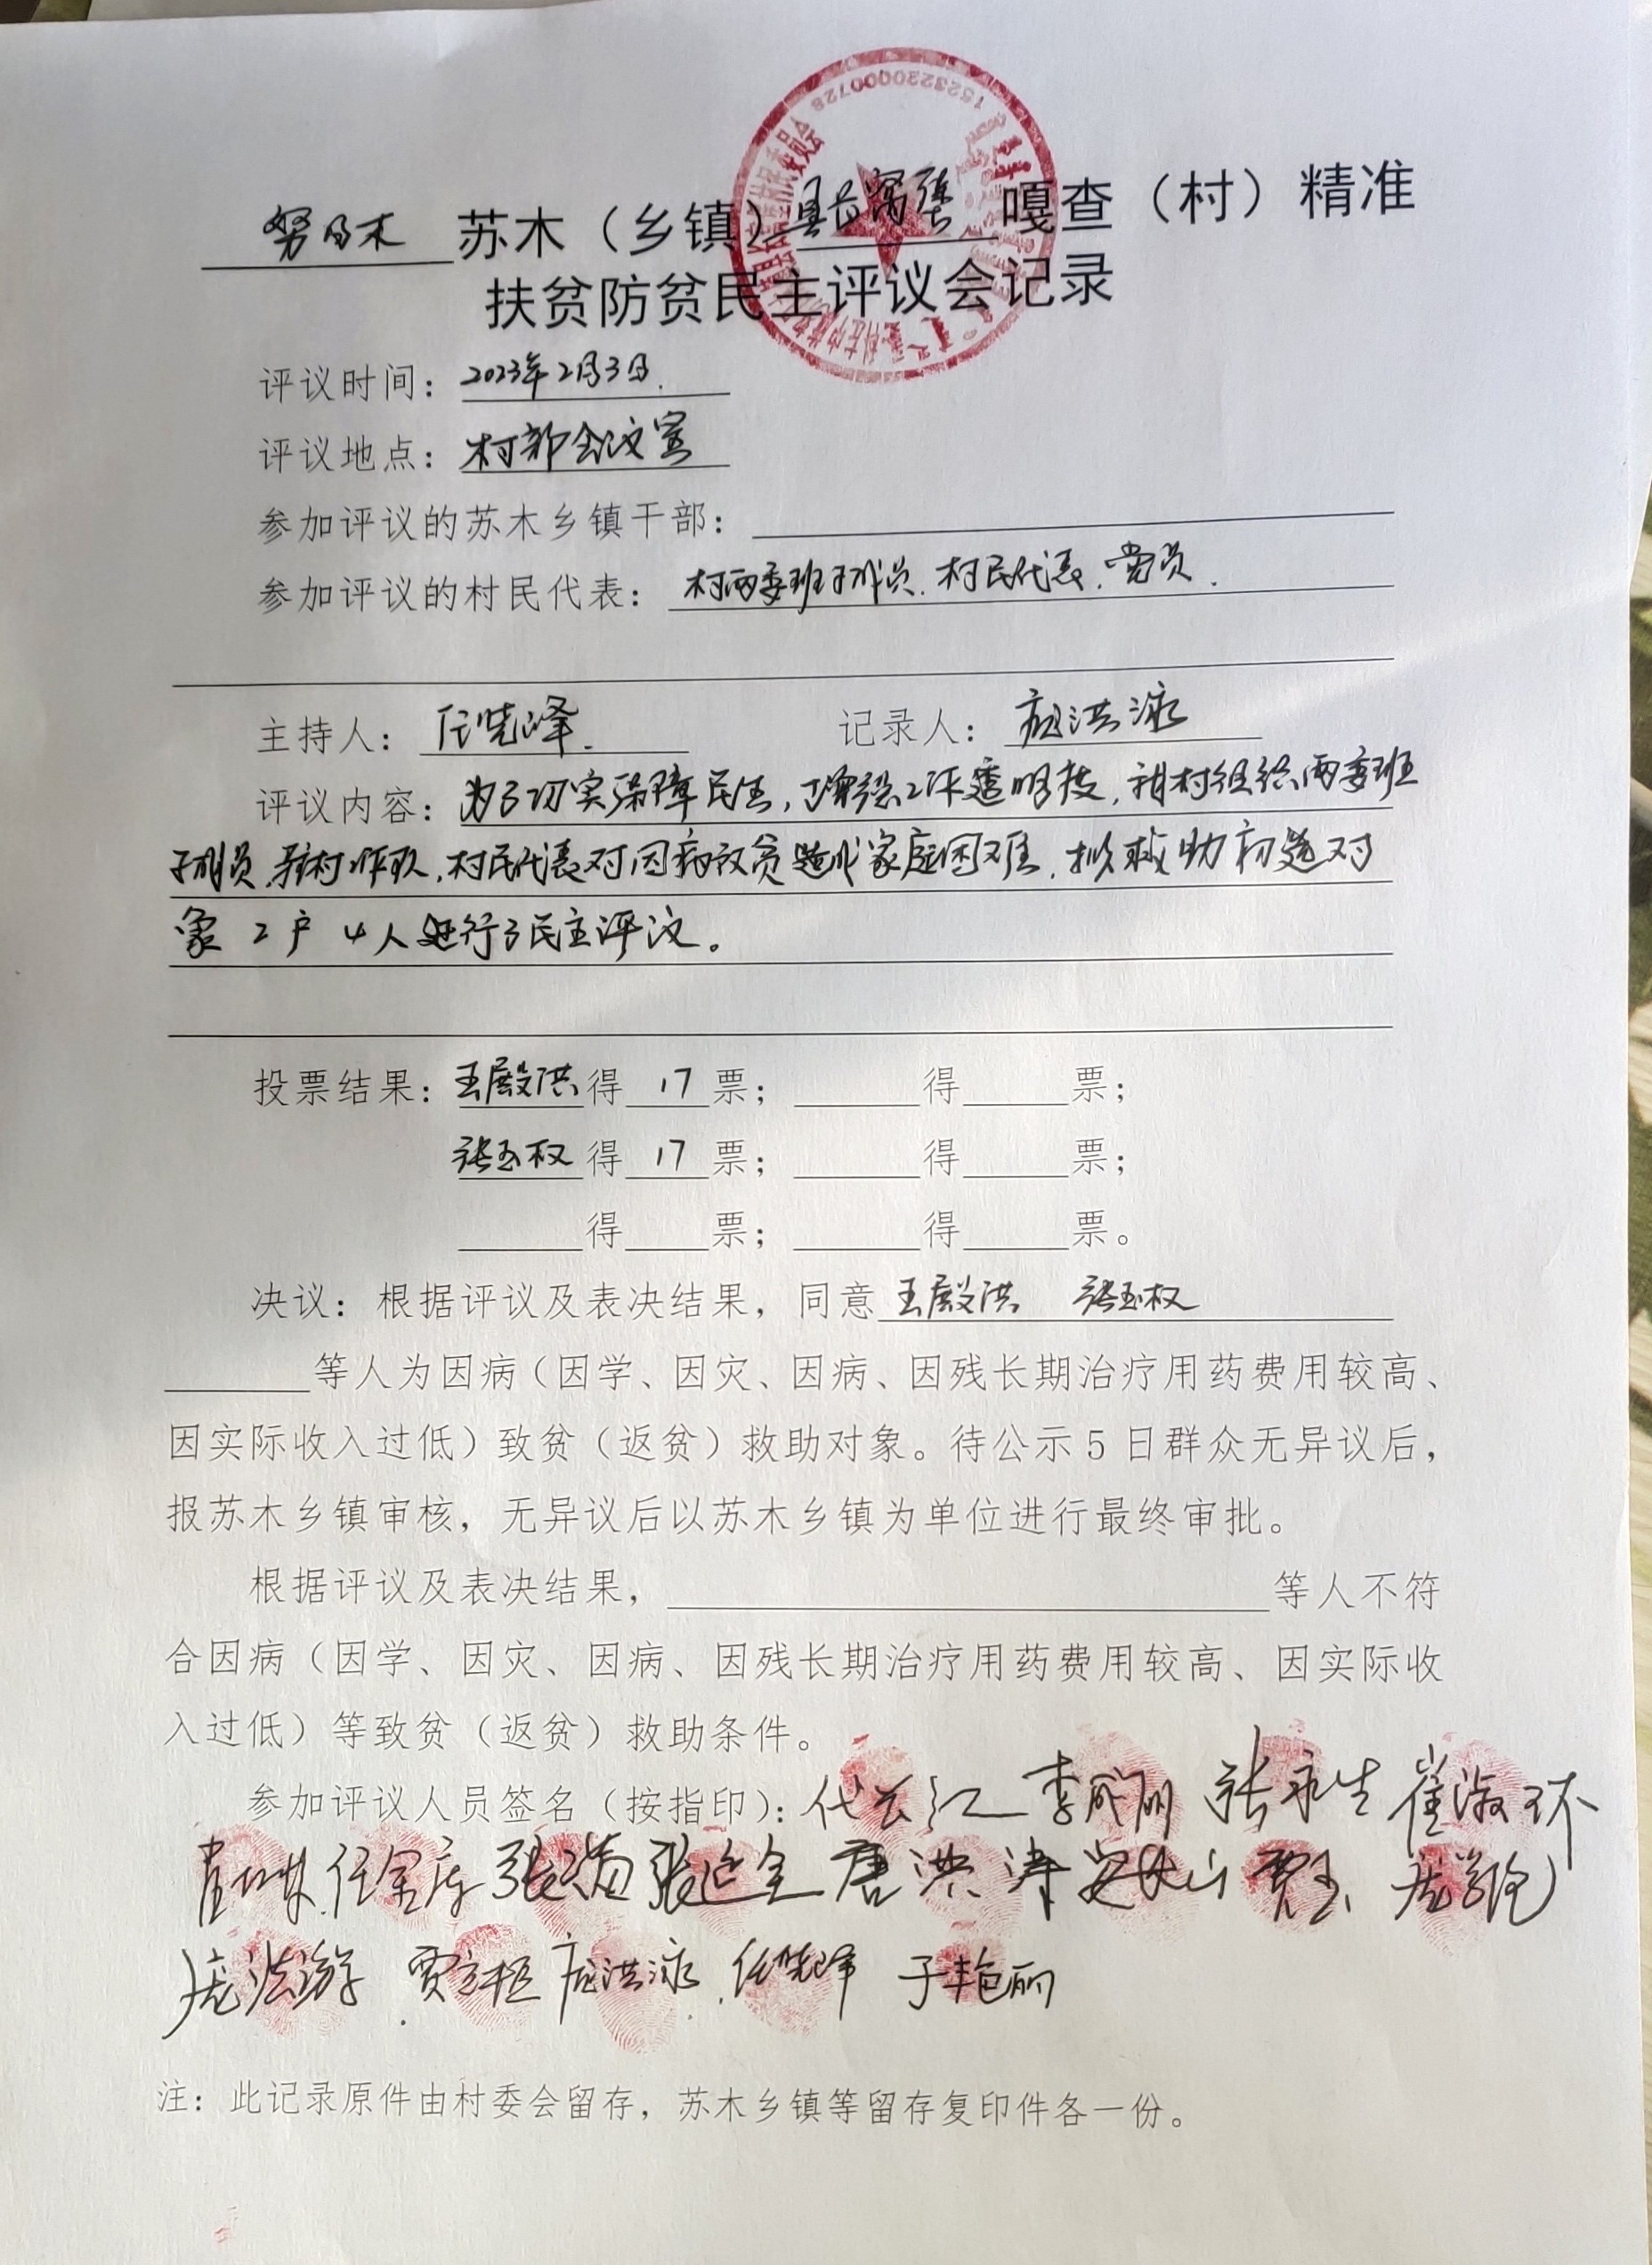 努日木 苏木（乡镇） 嘎查（村）精准
扶贫防贫民主评议会记录
评议时间：2023年2月3日.
评议地点：村部会议室
参加评议的苏木乡镇干部：
参加评议的村民代表：村两委班子成员.村民代表.党员.
主持人：任晓峰. 记录人：庞洪泳
评议内容：为了切实保障民生，增强工作透明度，我村组织两委班
子成员.驻村工作队.村民代表对因病致贫造成家庭困难.拟救助初选对
象2户4人进行了民主评议。
投票结果：王殿洪得17票； 得 票；
张玉权得17票； 得 票；
得 票； 得 票。
决议：根据评议及表决结果，同意王殿洪 张玉权
等人为因病（因学、因灾、因病、因残长期治疗用药费用较高、
因实际收入过低）致贫（返贫）救助对象。待公示5日群众无异议后，
报苏木乡镇审核，无异议后以苏木乡镇为单位进行最终审批。
根据评议及表决结果， 等人不符
合因病（因学、因灾、因病、因残长期治疗用药费用较高、因实际收
入过低）等致贫（返贫）救助条件。
参加评议人员签名（按指印）：代长江 李成丽 张永生 崔淑环
任金库 张延全 唐洪津 贾玉
庞洪泳 任晓峰 于艳丽
注：此记录原件由村委会留存，苏木乡镇等留存复印件各一份。